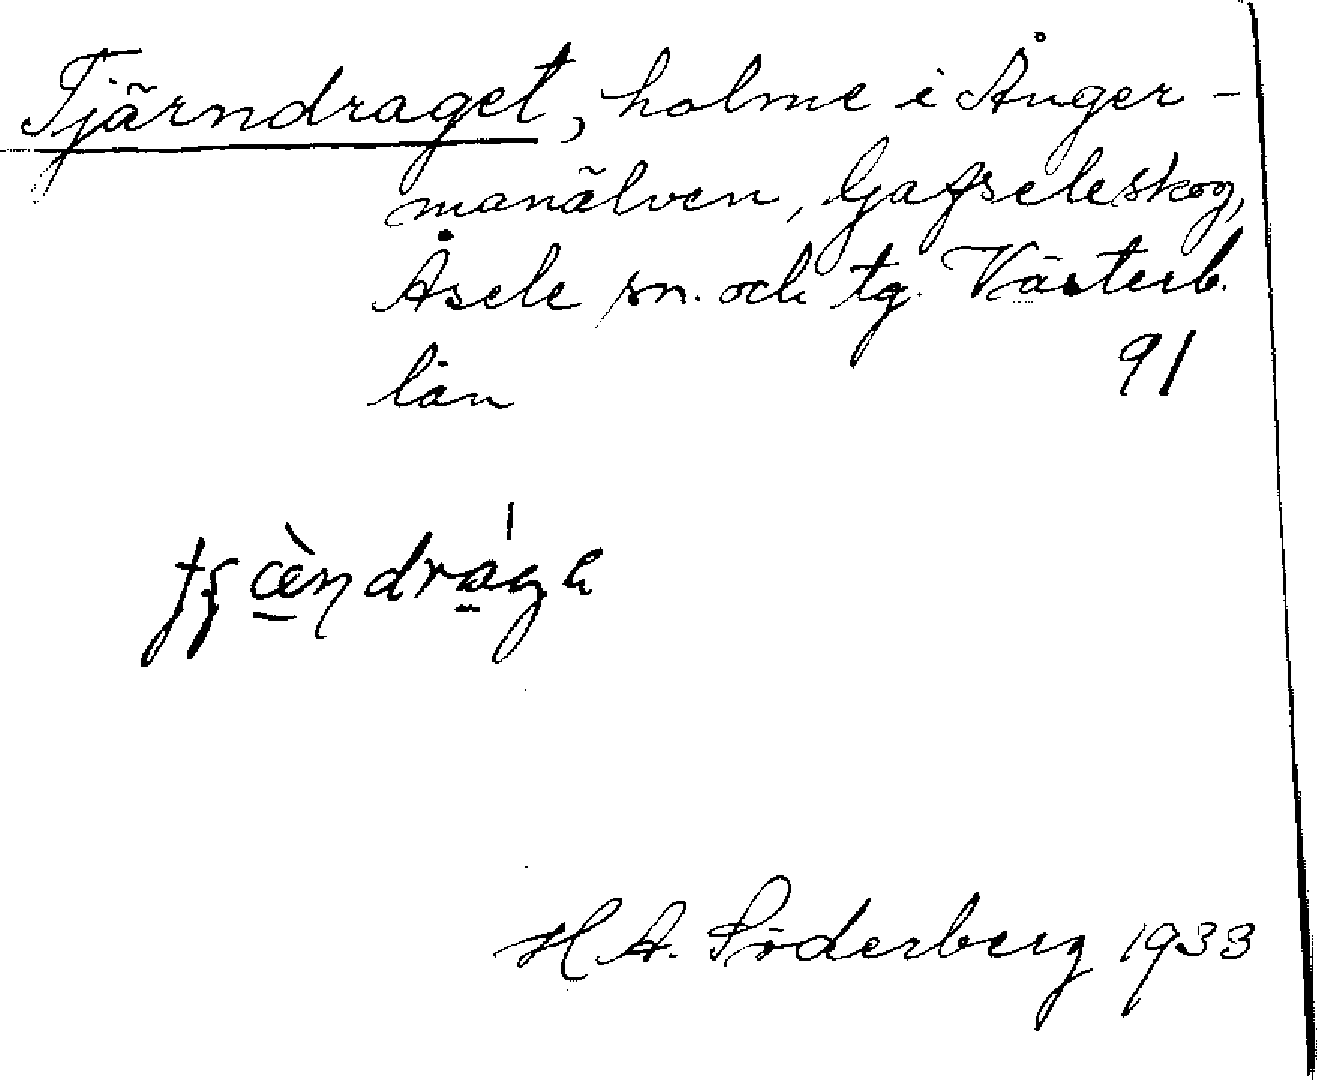 Tjärndraget, holme i Ånger-
manälven, Gafseleskog,
Åsele sn. och tg. Västerb.
län 91
H. A. Söderberg 1933